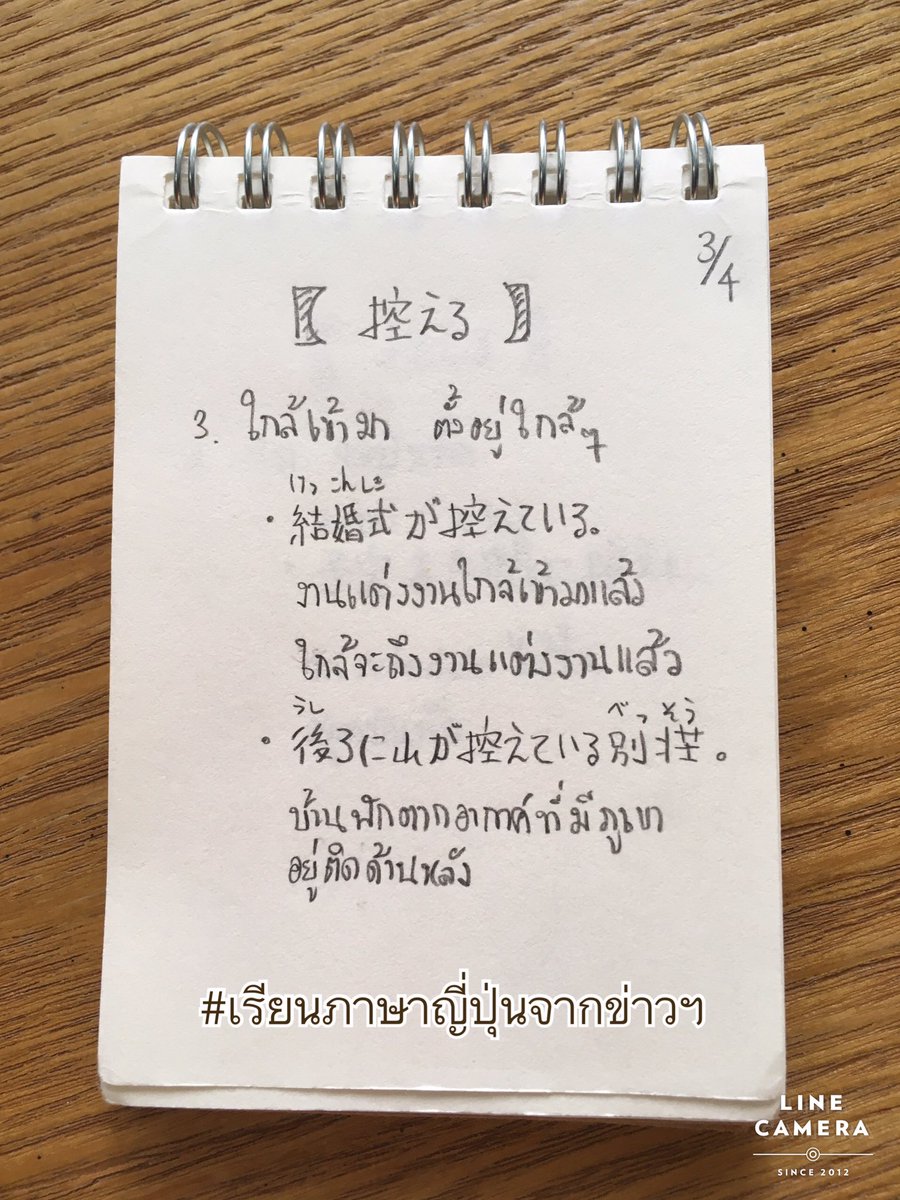 3/4
【 控える 】
3. ใกล้เข้ามา ตั้งอยู่ใกล้ๆ
けっこんしき
・結婚式が控えている。
งานแต่งงานใกล้เข้ามาแล้ว
ใกล้จะถึงงานแต่งงานแล้ว
うし べっそう
・後ろに山が控えている別荘。
บ้านพักตากอากาศที่มีภูเขา
อยู่ติดด้านหลัง
#เรียนภาษาญี่ปุ่นจากข่าวฯ
LINE
CAMERA
SINCE 2012